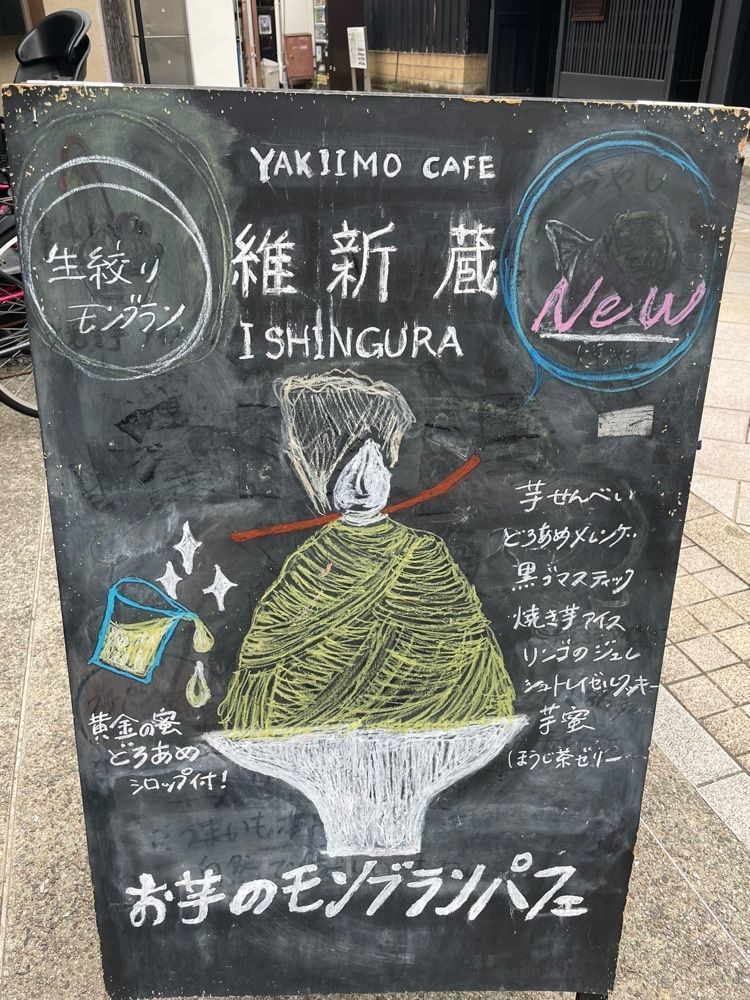 YAKIIMO CAFE
維新蔵
ISHINGURA
生絞り
モンブラン
冷やし
New
芋せんべい
どろあめメレンゲ
黒ゴマスティック
焼き芋アイス
リンゴのジュレ
シュトレイゼルクッキー
芋蜜
ほうじ茶ゼリー
黄金の蜜
どろあめ
シロップ付!
お芋のモンブランパフェ